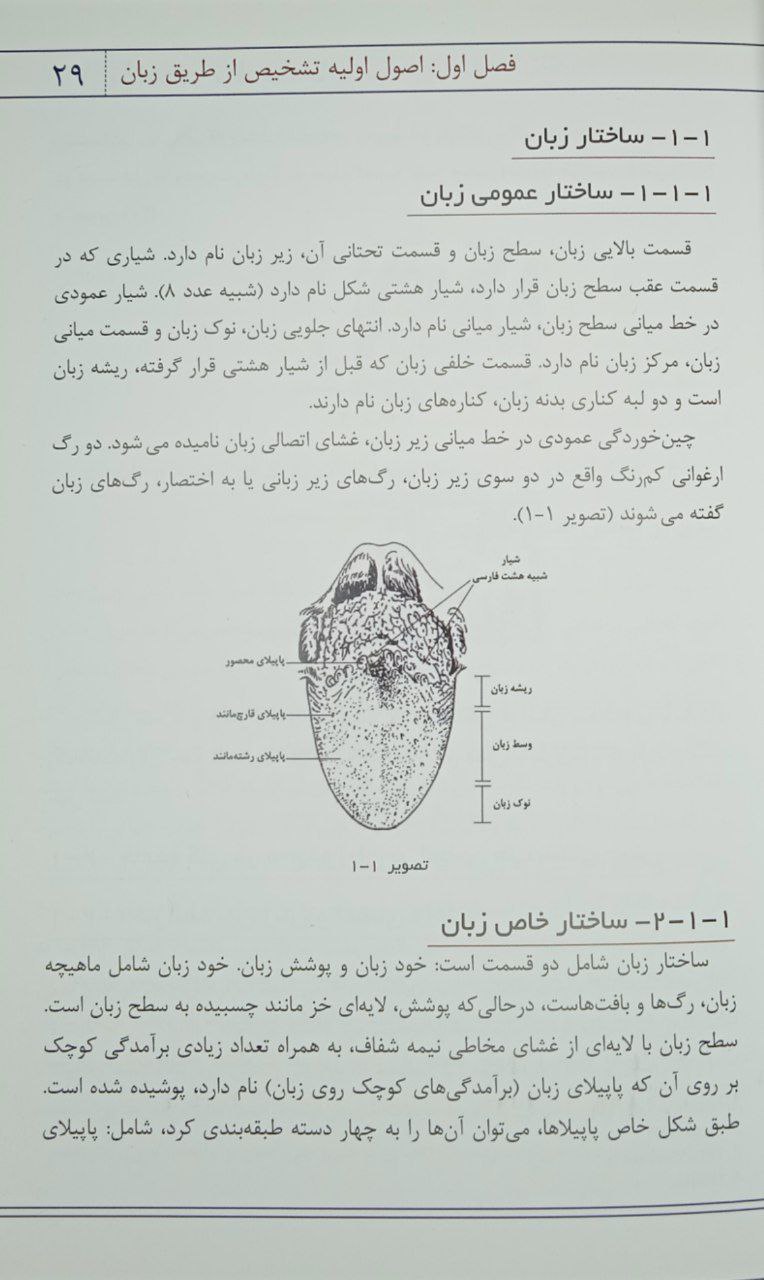 فصل اول: اصول اولیه تشخیص از طریق زبان ۲۹
۱-۱- ساختار زبان
۱-۱-۱- ساختار عمومی زبان
قسمت بالایی زبان، سطح زبان و قسمت تحتانی آن، زیر زبان نام دارد. شیاری که در
قسمت عقب سطح زبان قرار دارد، شیار هشتی شکل نام دارد (شبیه عدد ۸). شیار عمودی
در خط میانی سطح زبان، شیار میانی نام دارد. انتهای جلویی زبان، نوک زبان و قسمت میانی
زبان، مرکز زبان نام دارد. قسمت خلفی زبان که قبل از شیار هشتی قرار گرفته، ریشه زبان
است و دو لبه کناری بدنه زبان، کناره‌های زبان نام دارند.
چین‌خوردگی عمودی در خط میانی زیر زبان، غشای اتصالی زبان نامیده می‌شود. دو رگ
ارغوانی کم‌رنگ واقع در دو سوی زیر زبان، رگ‌های زیر زبانی یا به اختصار، رگ‌های زبان
گفته می‌شوند (تصویر ۱-۱).
شیار
شبیه هشت فارسی
پاپیلای محصور
ریشه زبان
پاپیلای قارچ‌مانند
وسط زبان
پاپیلای رشته‌مانند
نوک زبان
تصویر ۱-۱
۱-۱-۲- ساختار خاص زبان
ساختار زبان شامل دو قسمت است: خود زبان و پوشش زبان. خود زبان شامل ماهیچه
زبان، رگ‌ها و بافت‌هاست، درحالی‌که پوشش، لایه‌ای خز مانند چسبیده به سطح زبان است.
سطح زبان با لایه‌ای از غشای مخاطی نیمه شفاف، به همراه تعداد زیادی برآمدگی کوچک
بر روی آن که پاپیلای زبان (برآمدگی‌های کوچک روی زبان) نام دارد، پوشیده شده است.
طبق شکل خاص پاپیلاها، می‌توان آن‌ها را به چهار دسته طبقه‌بندی کرد، شامل: پاپیلای